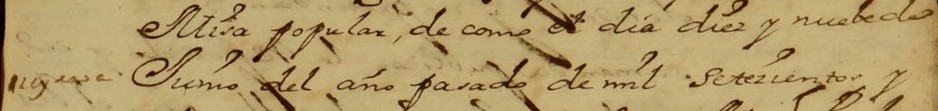 Misa popular, de como el dia diez y nuebe de
Junio del año pasado de mil Setezientos y